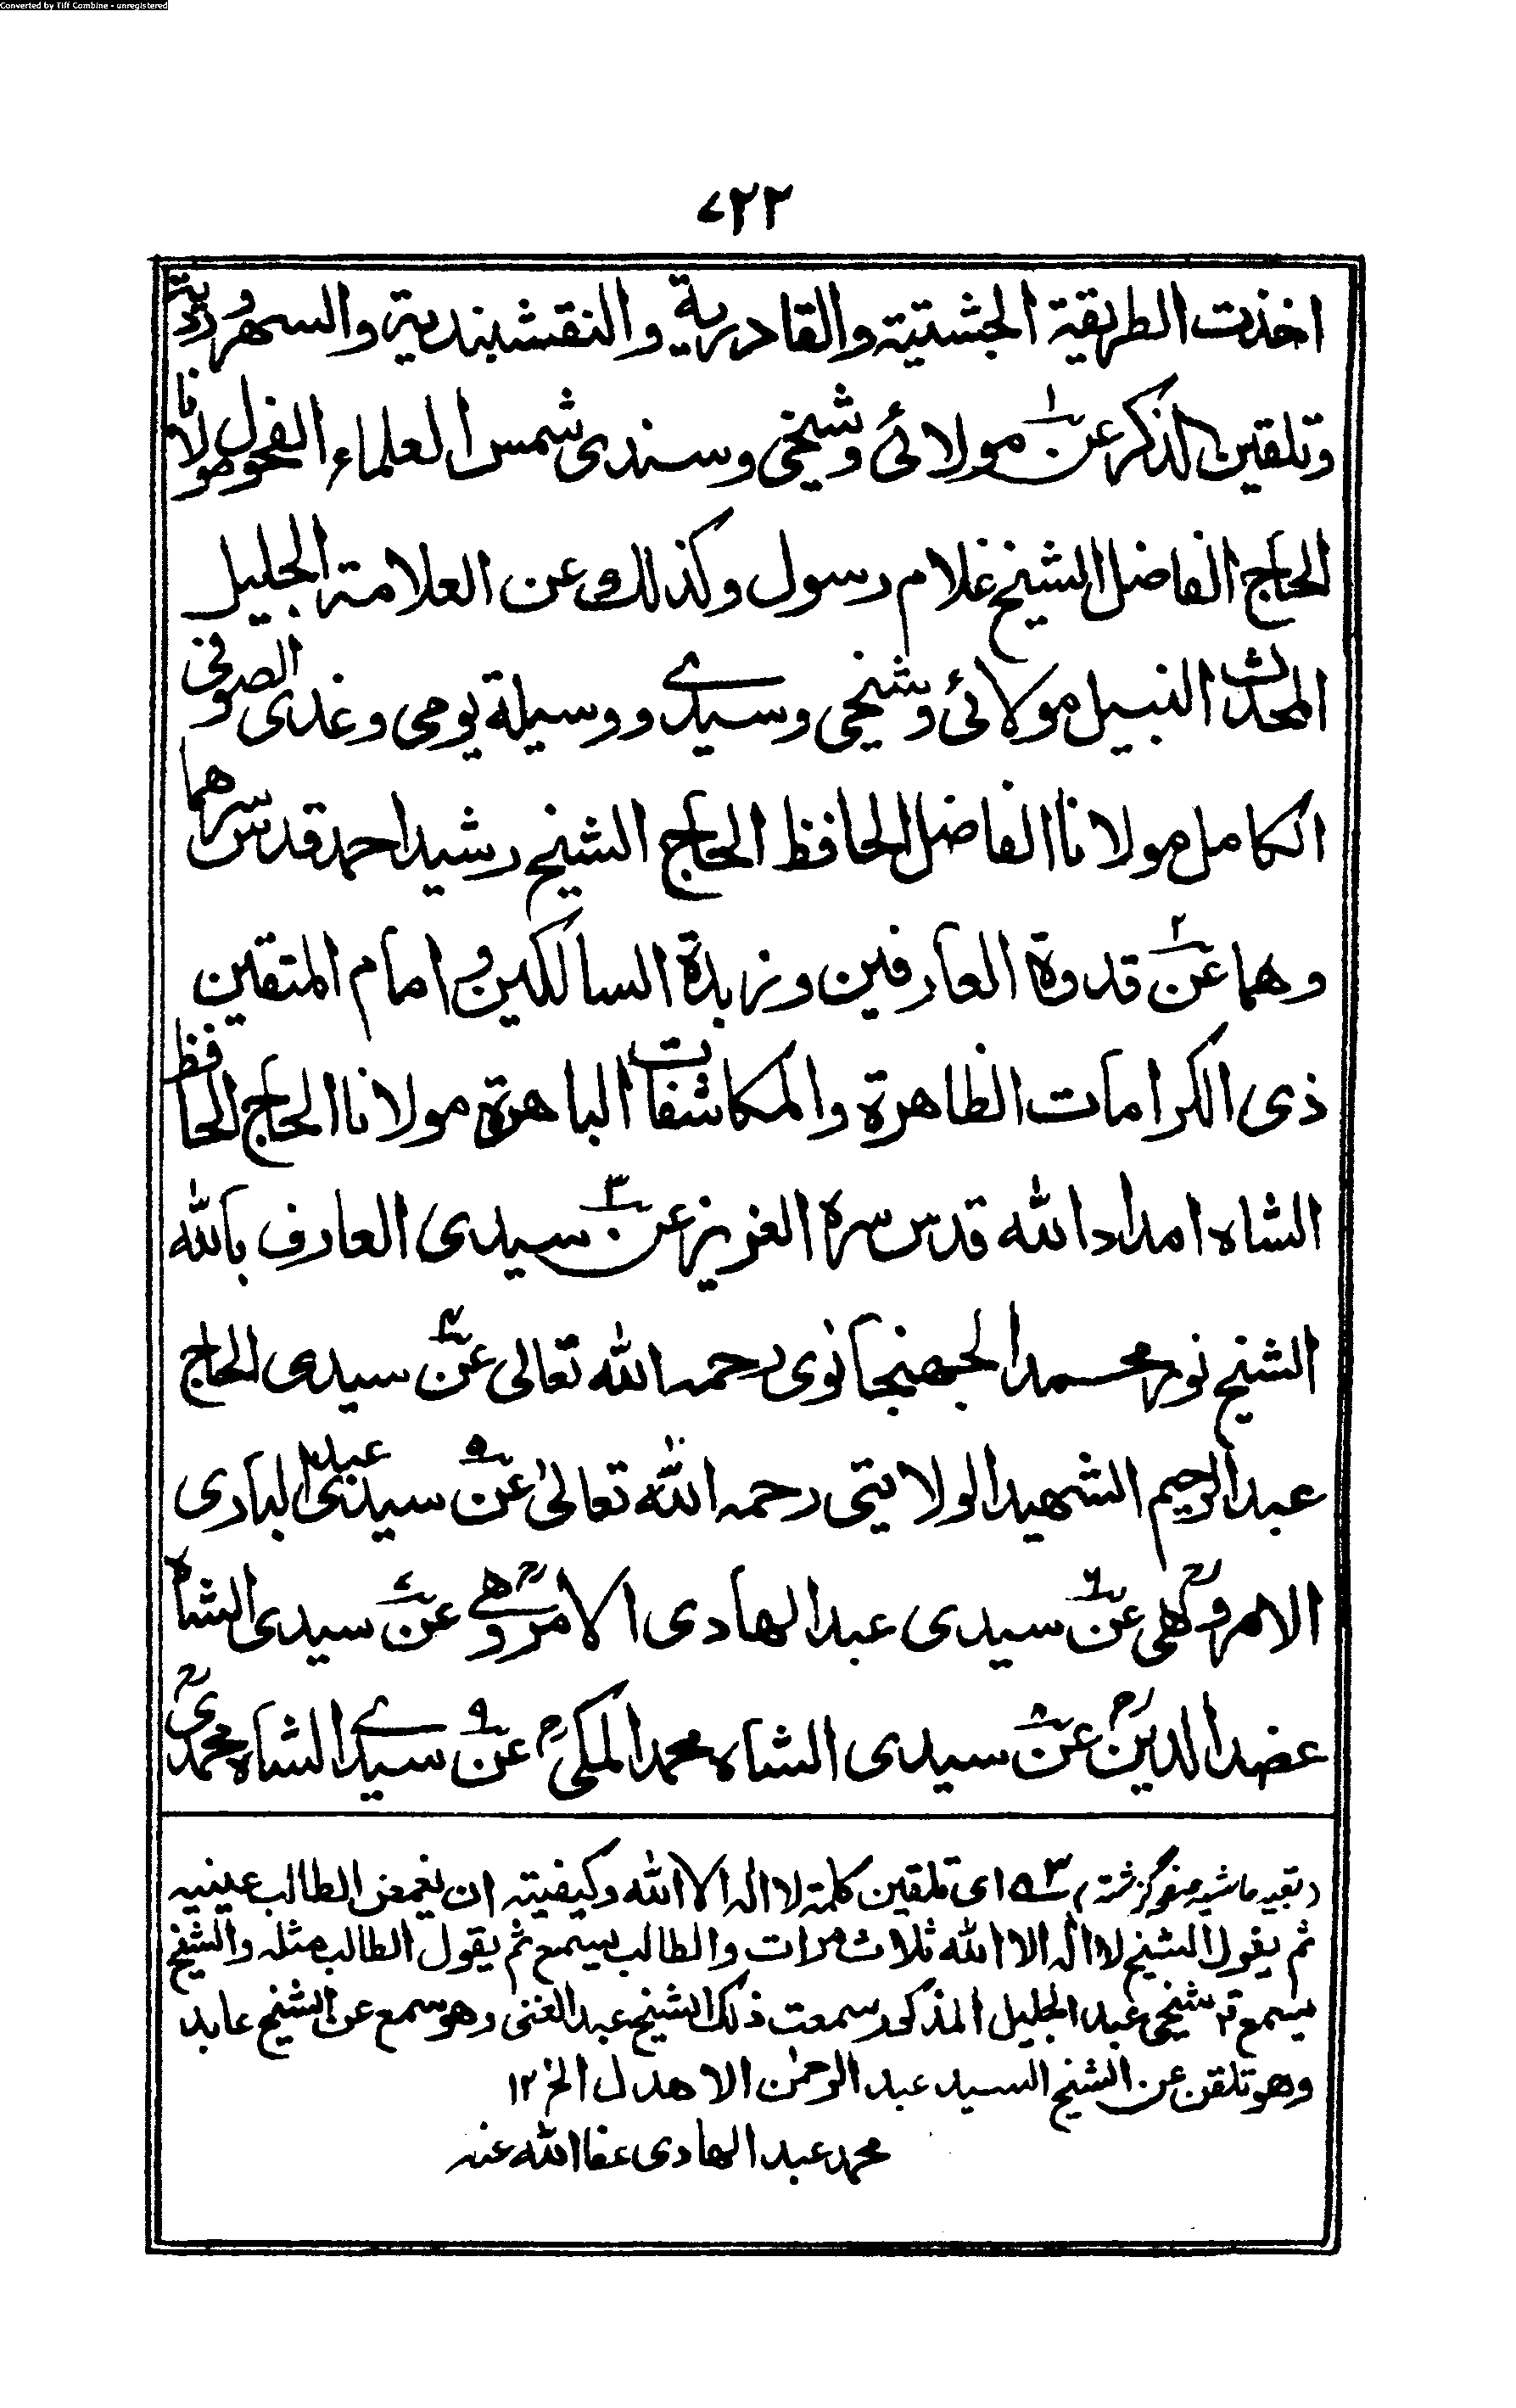 Converted by Tiff Combine - unregistered
۷۲۲
اخذت الطريقة الجشتية والقادرية والنقشبندية والسهروردية
وتلقين الذكر عن۱ مولائی وشيخی وسندی شمس العلماء الفحول مولانا
الحاج الفاضل الشيخ غلام رسول وكذلك عن العلامة الجليل
المحدث النبيل مولائی وشيخی وسيدے ووسيلة يومی وغدی الصوفی
الكامل مولانا الفاضل الحافظ الحاج الشيخ رشيد احمد قدس سرهما
وهما عن۲ قدوة العارفين وزبدة السالكين وامام المتقين
ذی الكرامات الظاهرة والمكاشفات الباهرة مولانا الحاج الحافظ
الشاه امداد الله قدس سره العزيز عن۳ سيدی العارف بالله
الشيخ نور محمد الجهنجانوی رحمه الله تعالی عن۴ سيدی الحاج
عبد الرحيم الشهيد الولايتی رحمه الله تعالیٰ عن۵ سيدی عبد الباری
الامروهی ؒ عن۶ سيدی عبد الهادی الامروهے ؒ عن۷ سيدی الشاه
عضد الدين ؒ عن۸ سيدی الشاه محمد المكی ؒ عن۹ سيدے الشاه محمدی ؒ
(بقيہ حاشيہ صفحہ گزشتہ) ۳ه ای تلقين كلمة لا اله الا الله وكيفيته ان يغمض الطالب عينيه
ثم يقول الشيخ لا اله الا الله ثلاث مرات والطالب يسمع ثم يقول الطالب مثله والشيخ
يسمع شيخی عبد الجليل المذكور سمعت ذلك الشيخ عبد الغنی وهو سمع عن الشيخ عابد
وهو تلقن عن الشيخ السيد عبد الرحمٰن الاهدل الخ ۱۲
محمد عبد الهادی عفا الله عنه